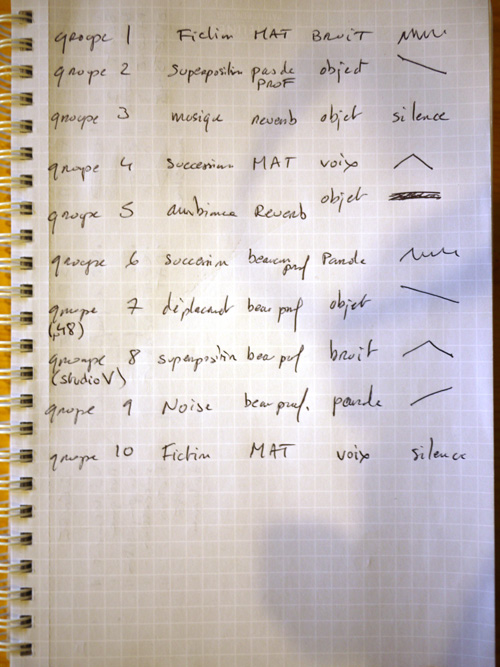 groupe 1 Fiction MAT BRUIT
groupe 2 Superposition pas de PROF object
groupe 3 musique reverb objet silence
groupe 4 Succession MAT voix
groupe 5 ambiance Reverb objet
groupe 6 succession beaucoup prof Parole
groupe 7 déplacement beau prof objet
(48)
groupe 8 superposition beau prof bruit
(studio V)
groupe 9 Noise beau prof. parole
groupe 10 Fiction MAT voix silence